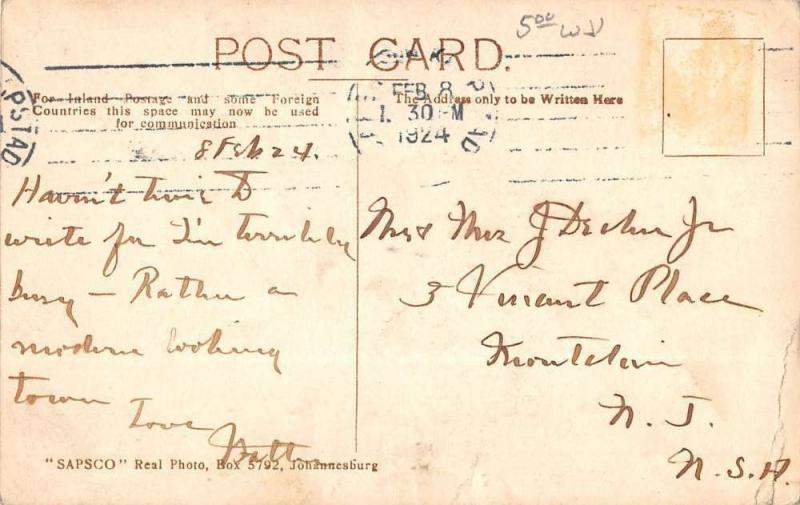 5.00
POST CARD.
For Inland Postage and some Foreign
Countries this space may now be used
for communication
The Address only to be Written Here
PSTAD
FEB 8
1. 30 M
1924
8 Feb 24.
Haven't time to
write for I'm terribly
busy — Rather a
modern looking
town
Love
Mr & Mrs J Decker Jr
3 Vincent Place
Montclair
N. J.
U.S.A.
"SAPSCO" Real Photo, Box 5792, Johannesburg